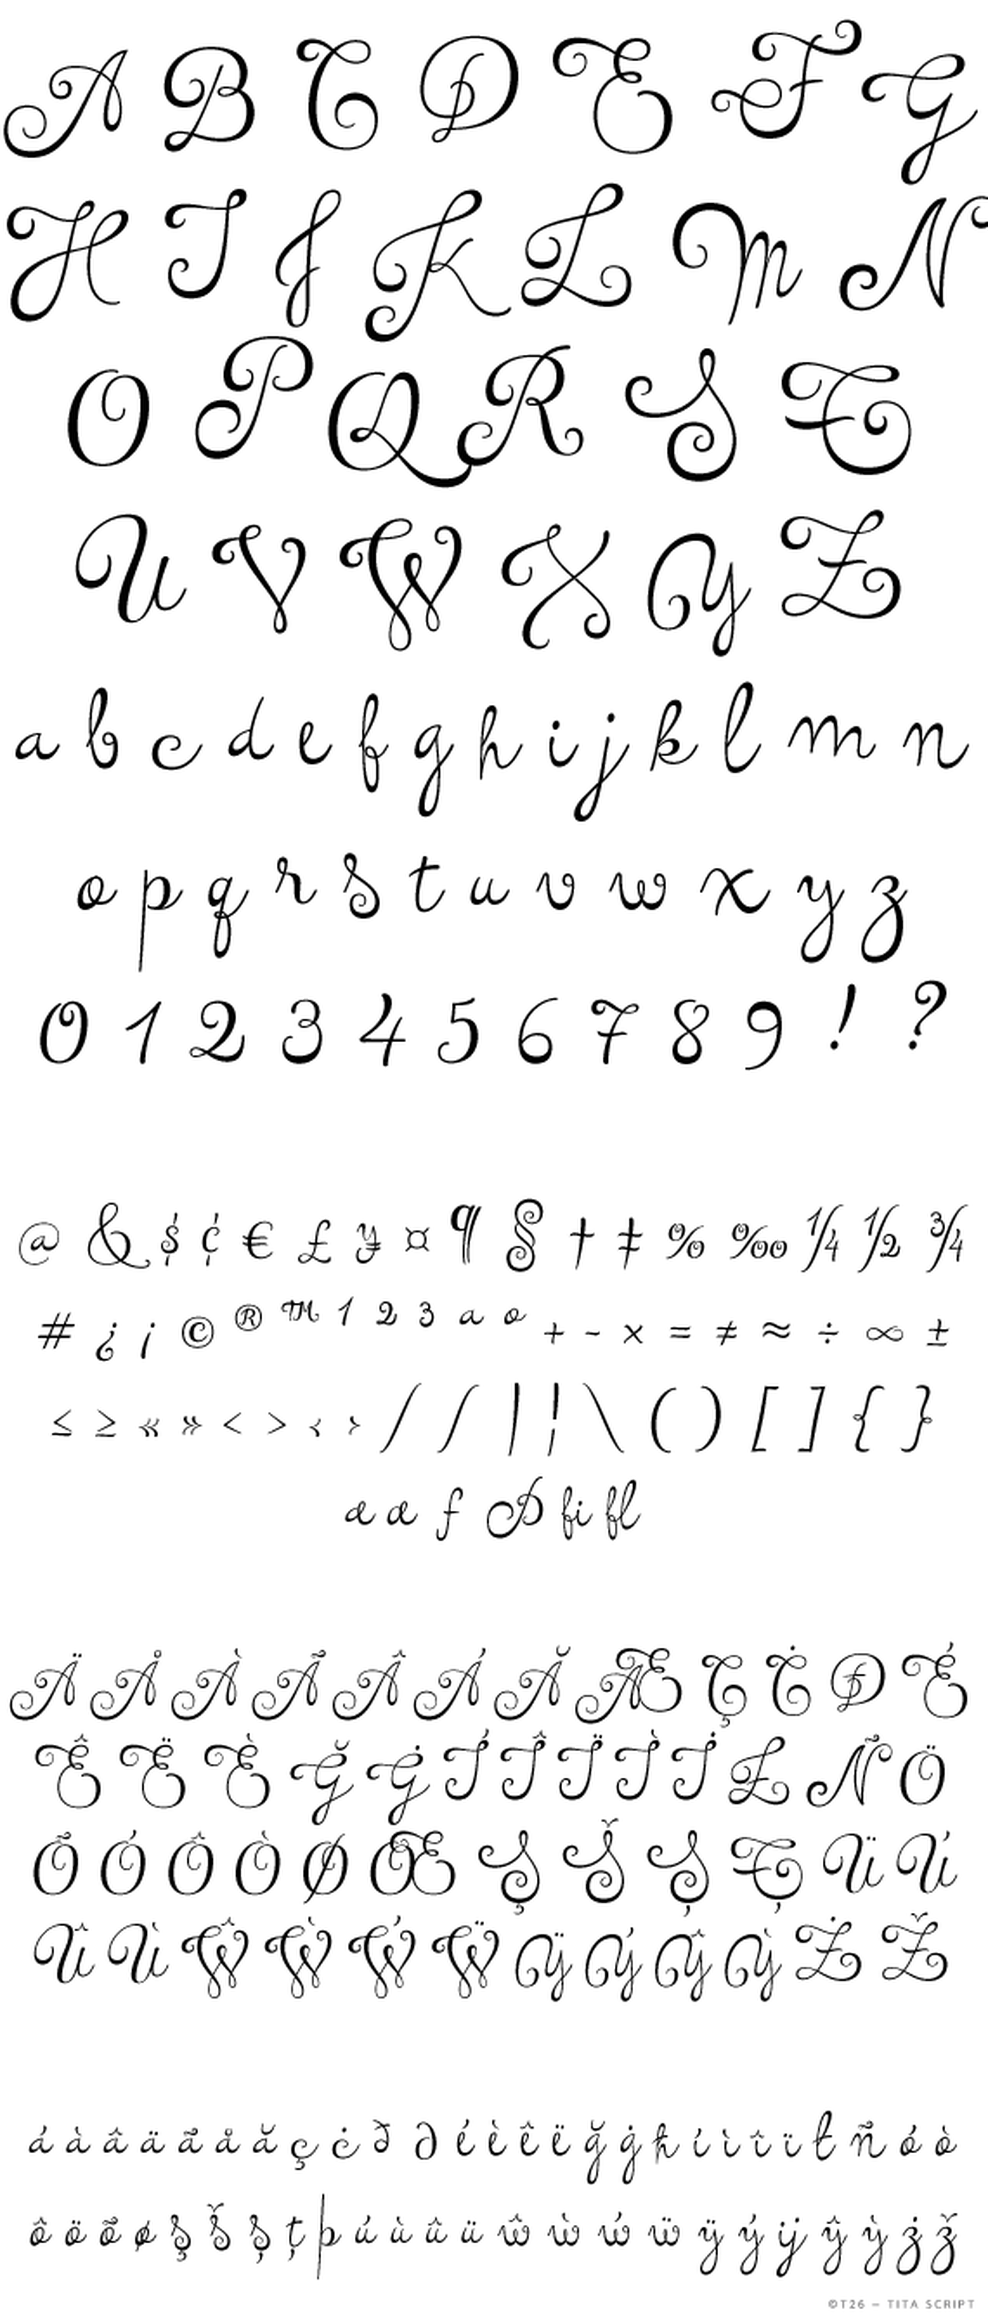 A B C D E F G
H I J K L M N
O P Q R S T
U V W X Y Z
a b c d e f g h i j k l m n
o p q r s t u v w x y z
0 1 2 3 4 5 6 7 8 9 ! ?
@ & $ ¢ € £ ¥ ¤ ¶ § † ‡ % ‰ ¼ ½ ¾
# ¿ ¡ © ® ™ 1 2 3 a o + - × = ≠ ≈ ÷ ∞ ±
≤ ≥ « » < > ‹ › / / | ¦ \ ( ) [ ] { }
æ œ ƒ Þ fi fl
Ä Å À Ã Â Á Ă Æ Ç Ċ Đ É
Ê Ë È Ğ Ġ Í Î Ï Ì İ Ł Ñ Ö
Õ Ó Ô Ò Ø Œ Ş Š Ș Ț Ü Ú
Û Ù Ŵ Ẁ Ẃ Ẅ Ÿ Ý Ŷ Ỳ Ż Ž
á à â ä ã å ă ç ċ ð ∂ é è ê ë ğ ġ ħ í ì î ï ł ñ ó ò
ô ö õ ø ş š ș ț þ ú ù û ü ŵ ẁ ẃ ẅ ÿ ý ij ŷ ỳ ż ž
©T26 – TITA SCRIPT